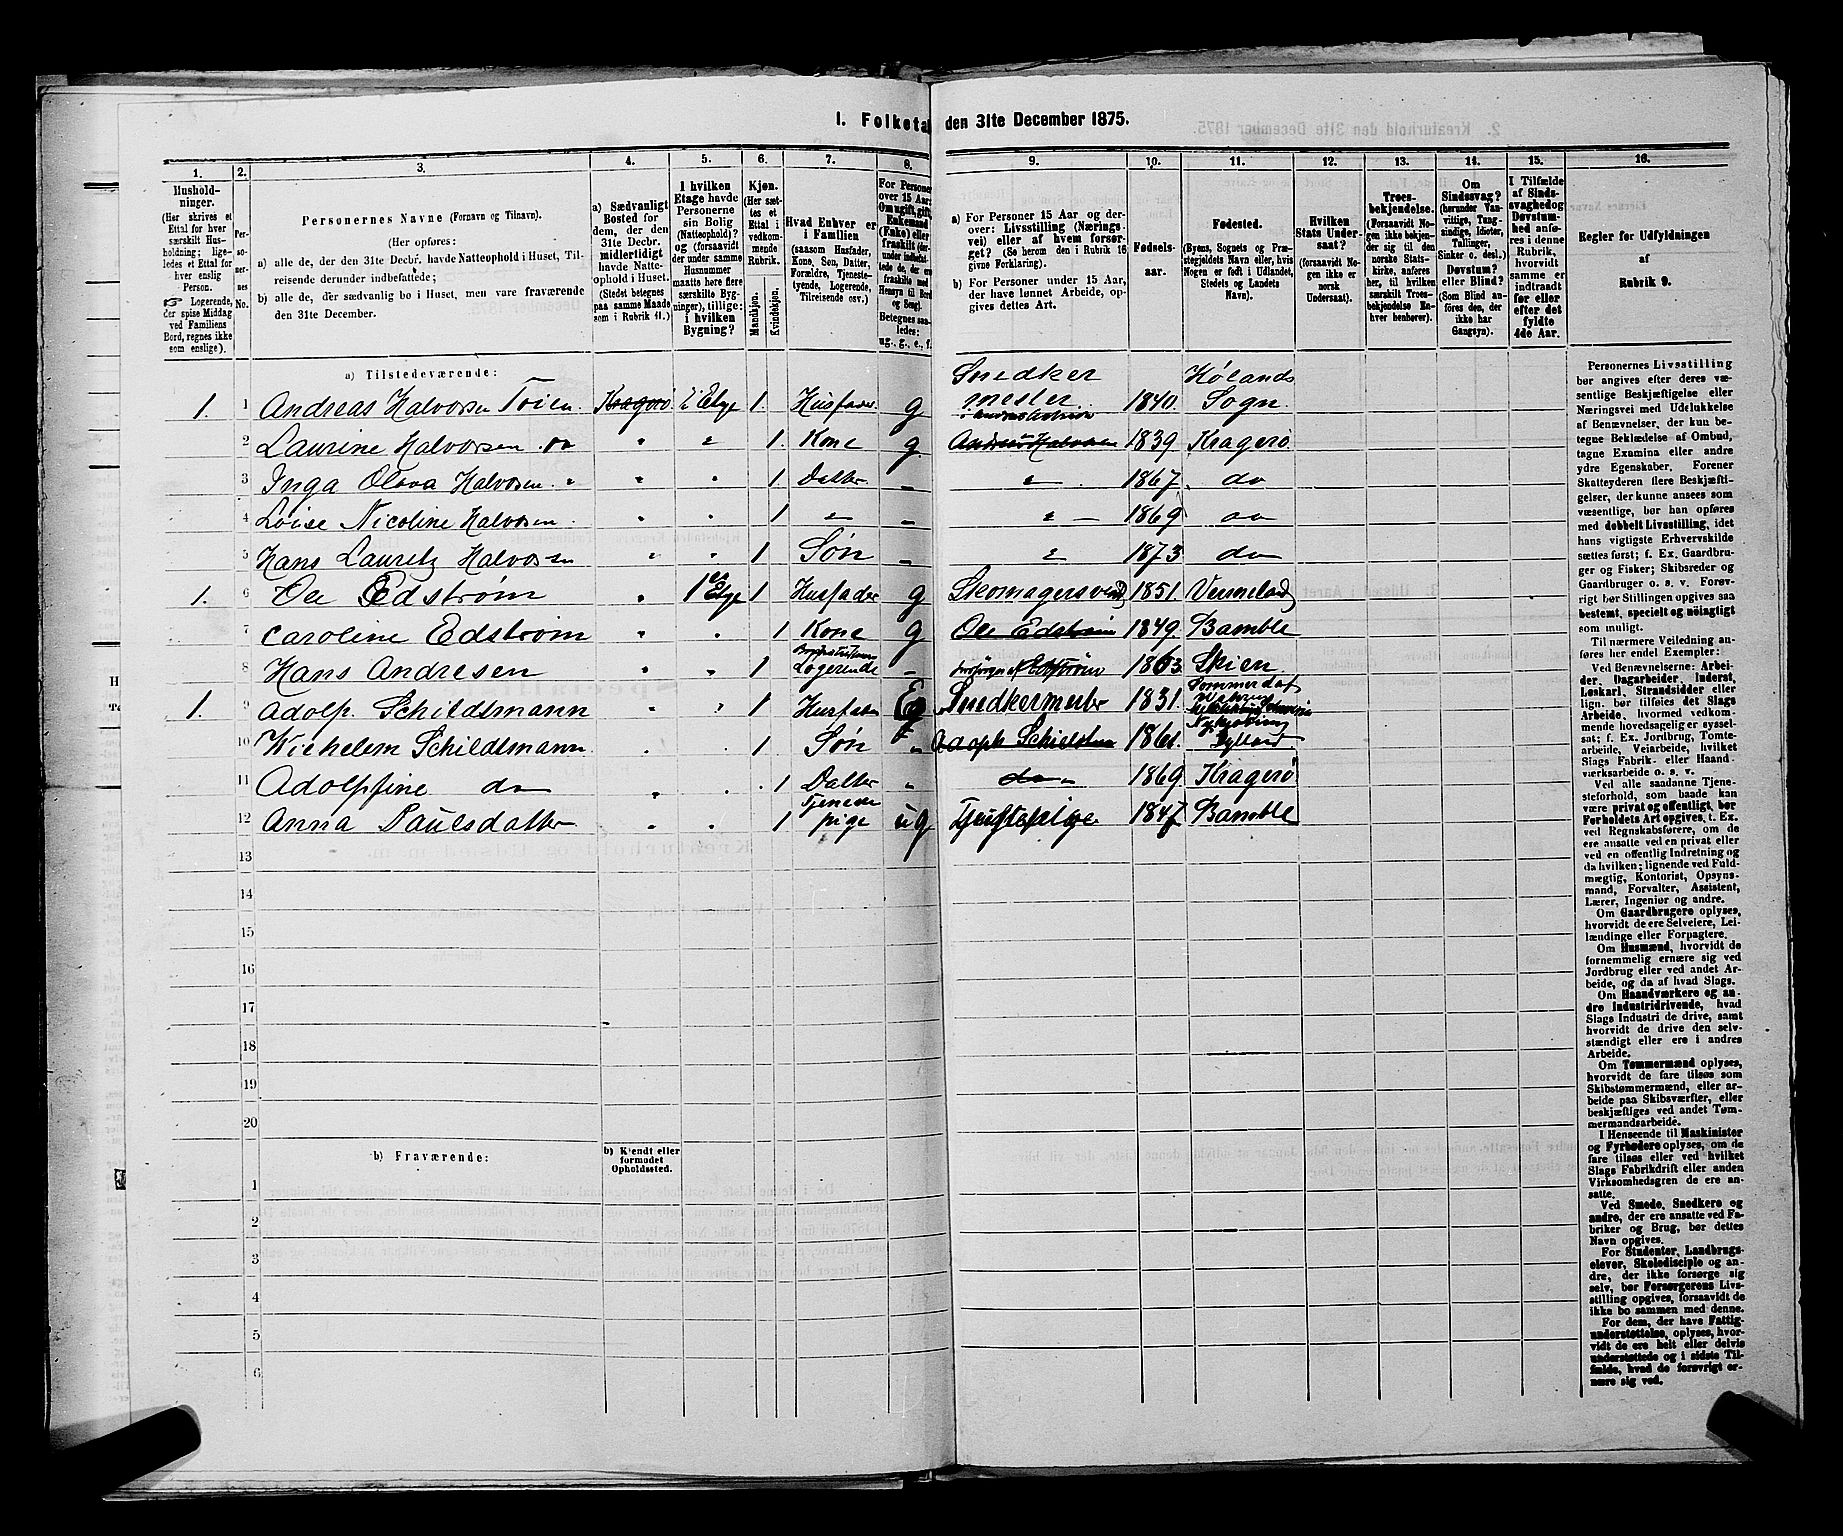 I. Folketal den 31te December 1875.
1. 2. 3. 4. 5. 6. 7. 8. 9. 10. 11. 12. 13. 14. 15. 16.
Hushold-
ninger.
(Her skrives et
Ettal for hver
særskilt Hus-
holdning; lige-
ledes et Ettal for
hver enslig
Person.
Logerende,
der spise Middag
ved Familiens
Bord, regnes ikke
som enslige).
Per-
so-
ner-
nes
No.
Personernes Navne (Fornavn og Tilnavn).
(Her opføres:
a) alle de, der den 31te Decbr. havde Natteophold i Huset, Til-
reisende derunder indbefattede;
b) alle de, der sædvanlig bo i Huset, men vare fraværende
den 31te December.
a) Sædvanligt
Bosted for
dem, der den
31te Decbr.
midlertidigt
havde Natte-
ophold i Huset.
(Stedet betegnes
paa samme Maade
som i Rubrik 11.)
I hvilken
Etage havde
Personerne
sin Bolig
(Natteophold)?
og (forsaavidt
der under samme
Husnummer
maatte høre flere
særskilte Byg-
ninger), tillige:
i hvilken
Bygning?
Kjøn.
(Her sæt-
tes et
Ettal i
vedkom-
mende
Rubrik.
Mandkjøn.
Kvindekjøn.
Hvad Enhver er
i Familien
(saasom Husfader,
Kone, Søn, Datter,
Forældre, Tjeneste-
tyende, Logerende,
Tilreisende osv.)
For Personer
over 15 Aar:
Om ugift, gift,
Enkemand
(Enke) eller
fraskilt (der-
under indbefat-
tede de, der ere
fraskilte med
Hensyn til Bord
og Seng).
Betegnes saa-
ledes:
ug., g., e., f.
a) For Personer 15 Aar og der-
over: Livsstilling (Nærings-
vei) eller af hvem forsør-
get? (Se herom den i Rubrik 16
givne Forklaring).
b) For Personer under 15 Aar,
der have lønnet Arbeide, op-
gives dettes Art.
Fødsels-
aar.
Fødested.
(Byens, Sognets og Præ-
stegjeldets Navn eller, hvis
Nogen er født i Udlandet,
Stedets og Landets
Navn).
Hvilken
Stats Under-
saat?
(forsaavidt No-
gen ikke er
norsk
Undersaat).
Troes-
bekjendelse.
(Forsaavidt No-
gen ikke bekjen-
der sig til den
norske Stats-
kirke, anføres
her, til hvilken
særskilt Troes-
bekjendelse En-
hver henhører).
Om
Sindssvag?
(herunder Van-
vittige, Tung-
sindige, Idioter,
Tullinger,
Sinker o. desl.)
Døvstum?
eller Blind?
(Som Blind an-
føres den, der
ikke har
Gangsyn).
I Tilfælde
af Sinds-
svaghed og
Døvstum-
hed anfø-
res i denne
Rubrik,
hvorvidt
samme er
indtraadt
før eller
efter det
fyldte
4de Aar.
Regler for Udfyldningen
af
Rubrik 9.
a) Tilstedeværende:
1. 1 Andreas Halvorsen Toien. Kragerø 2 Etge 1. Husfader. g Snedker mester 1840. Hølands Sogn.
2 Laurine Halvorsen do " " 1. Kone g. Andreas Halvorsen 1839 Kragerø
3 Inga Olava Halvorsen. " " " 1 Datter – " 1867. do
4 Loise Nicoline Halvorsen. " " 1 " – " – 1869 do
5 Hans Lauritz Halvorsen " " 1 Søn – " 1873 do
1. 6 Ole Edstrøm " 1 Etge 1 Husfader g Skomagersvend 1851. Vermeland
7 Caroline Edstrøm " " 1 Kone g Ole Edstrøm 1849. Bamble
8 Hans Andresen " " 1 Logerende – 1863. Skien.
1. 9 Adolp. Schildsmann " " 1 Husfader E Snedkermester 1831.
10 Wilhelem Schildsmann. " " 1 Søn " 1861. Nykjøbing Jylland.
11 Adolpfine do " " 1 Datter " do " 1869. Kragerø
12 Anna Paulsdatter " " 1 Tjeneste pige ug Tjenstepige 1847 Bamble
13
14
15
16
17
18
19
20
b) Fraværende:
b) Kjendt eller
formodet
Opholdssted.
1
2
3
4
5
6
Personernes Livsstilling
bør angives efter deres væ-
sentlige Beskjæftigelse eller
Næringsvei med Udelukkelse
af Benævnelser, der kun be-
tegne Beklædelse af Ombud,
tagne Examina eller andre
ydre Egenskaber. Forener
Skatteyderen flere Beskjæfti-
gelser, der kunne ansees som
væsentlige, bør han opføres
med dobbelt Livsstilling, idet
hans vigtigste Erhvervskilde
sættes først; f. Ex. Gaardbru-
ger og Fisker; Skibsreder og
Gaardbruger o. s. v. Forøv-
rigt bør Stillingen opgives saa
bestemt, specielt og nöiagtigt
som muligt.
Til nærmere Veiledning an-
føres her endel Exempler:
Ved Benævnelserne: Arbei-
der, Dagarbeider, Inderst,
Løskarl, Strandsidder eller
lign. bør tilføies det Slags
Arbeide, hvormed vedkom-
mende hovedsagelig er syssel-
sat; f. Ex. Jordbrug, Tomte-
arbeide, Veiarbeide, hvilket
Slags Fabrik- eller Haand-
værksarbeide o. s. v.
Ved alle saadanne Tjene-
steforhold, som baade kan
være privat og offentligt, bør
Forholdets Art opgives, t. Ex.
ved Regnskabsførere, om de
ere ansatte ved en privat eller
ved en offentlig Indretning og
da hvilken; lignende ved Fuld-
mægtig, Kontorist, Opsyns-
mand, Forvalter, Assistent,
Lærer, Ingeniør og andre.
Om Gaardbrugere oplyses,
hvorvidt de ere Selveiere, Lei-
lændinge eller Forpagtere.
Om Husmænd, hvorvidt de
fornemmelig ernære sig ved
Jordbrug eller ved andet Ar-
beide, og da af hvad Slags.
Om Haandværkere og an-
dre Industridrivende, hvad
Slags Industri de drive, samt
hvorvidt de drive den selv-
stændigt eller ere i andres
Arbeide.
Om Tømmermænd oplyses,
hvorvidt de fare tilsøs som
Skibstømmermænd, eller ar-
beide paa Skibsværfter, eller
beskjæftiges ved andet Tøm-
mermandsarbeide.
I Henseende til Maskinister
og Fyrbødere oplyses, om de
fare tilsøs eller ved hvilket
Slags Fabrikdrift eller anden
Virksomhedsgren de ere an-
satte.
Ved Smede, Snedkere og
andre, der ere ansatte ved Fa-
briker og Brug, bør dettes
Navn opgives.
For Studenter, Landbrugs-
elever, Skoledisciple og an-
dre, der ikke forsørge sig
selv, bør Forsørgerens Livs-
stilling opgives, forsaavidt de
ikke bo sammen med denne.
For dem, der have Fattig-
understøttelse, oplyses, hvor-
vidt de ere helt eller delvis
understøttede og i sidste Til-
fælde, hvad de forøvrigt er-
nære sig ved.